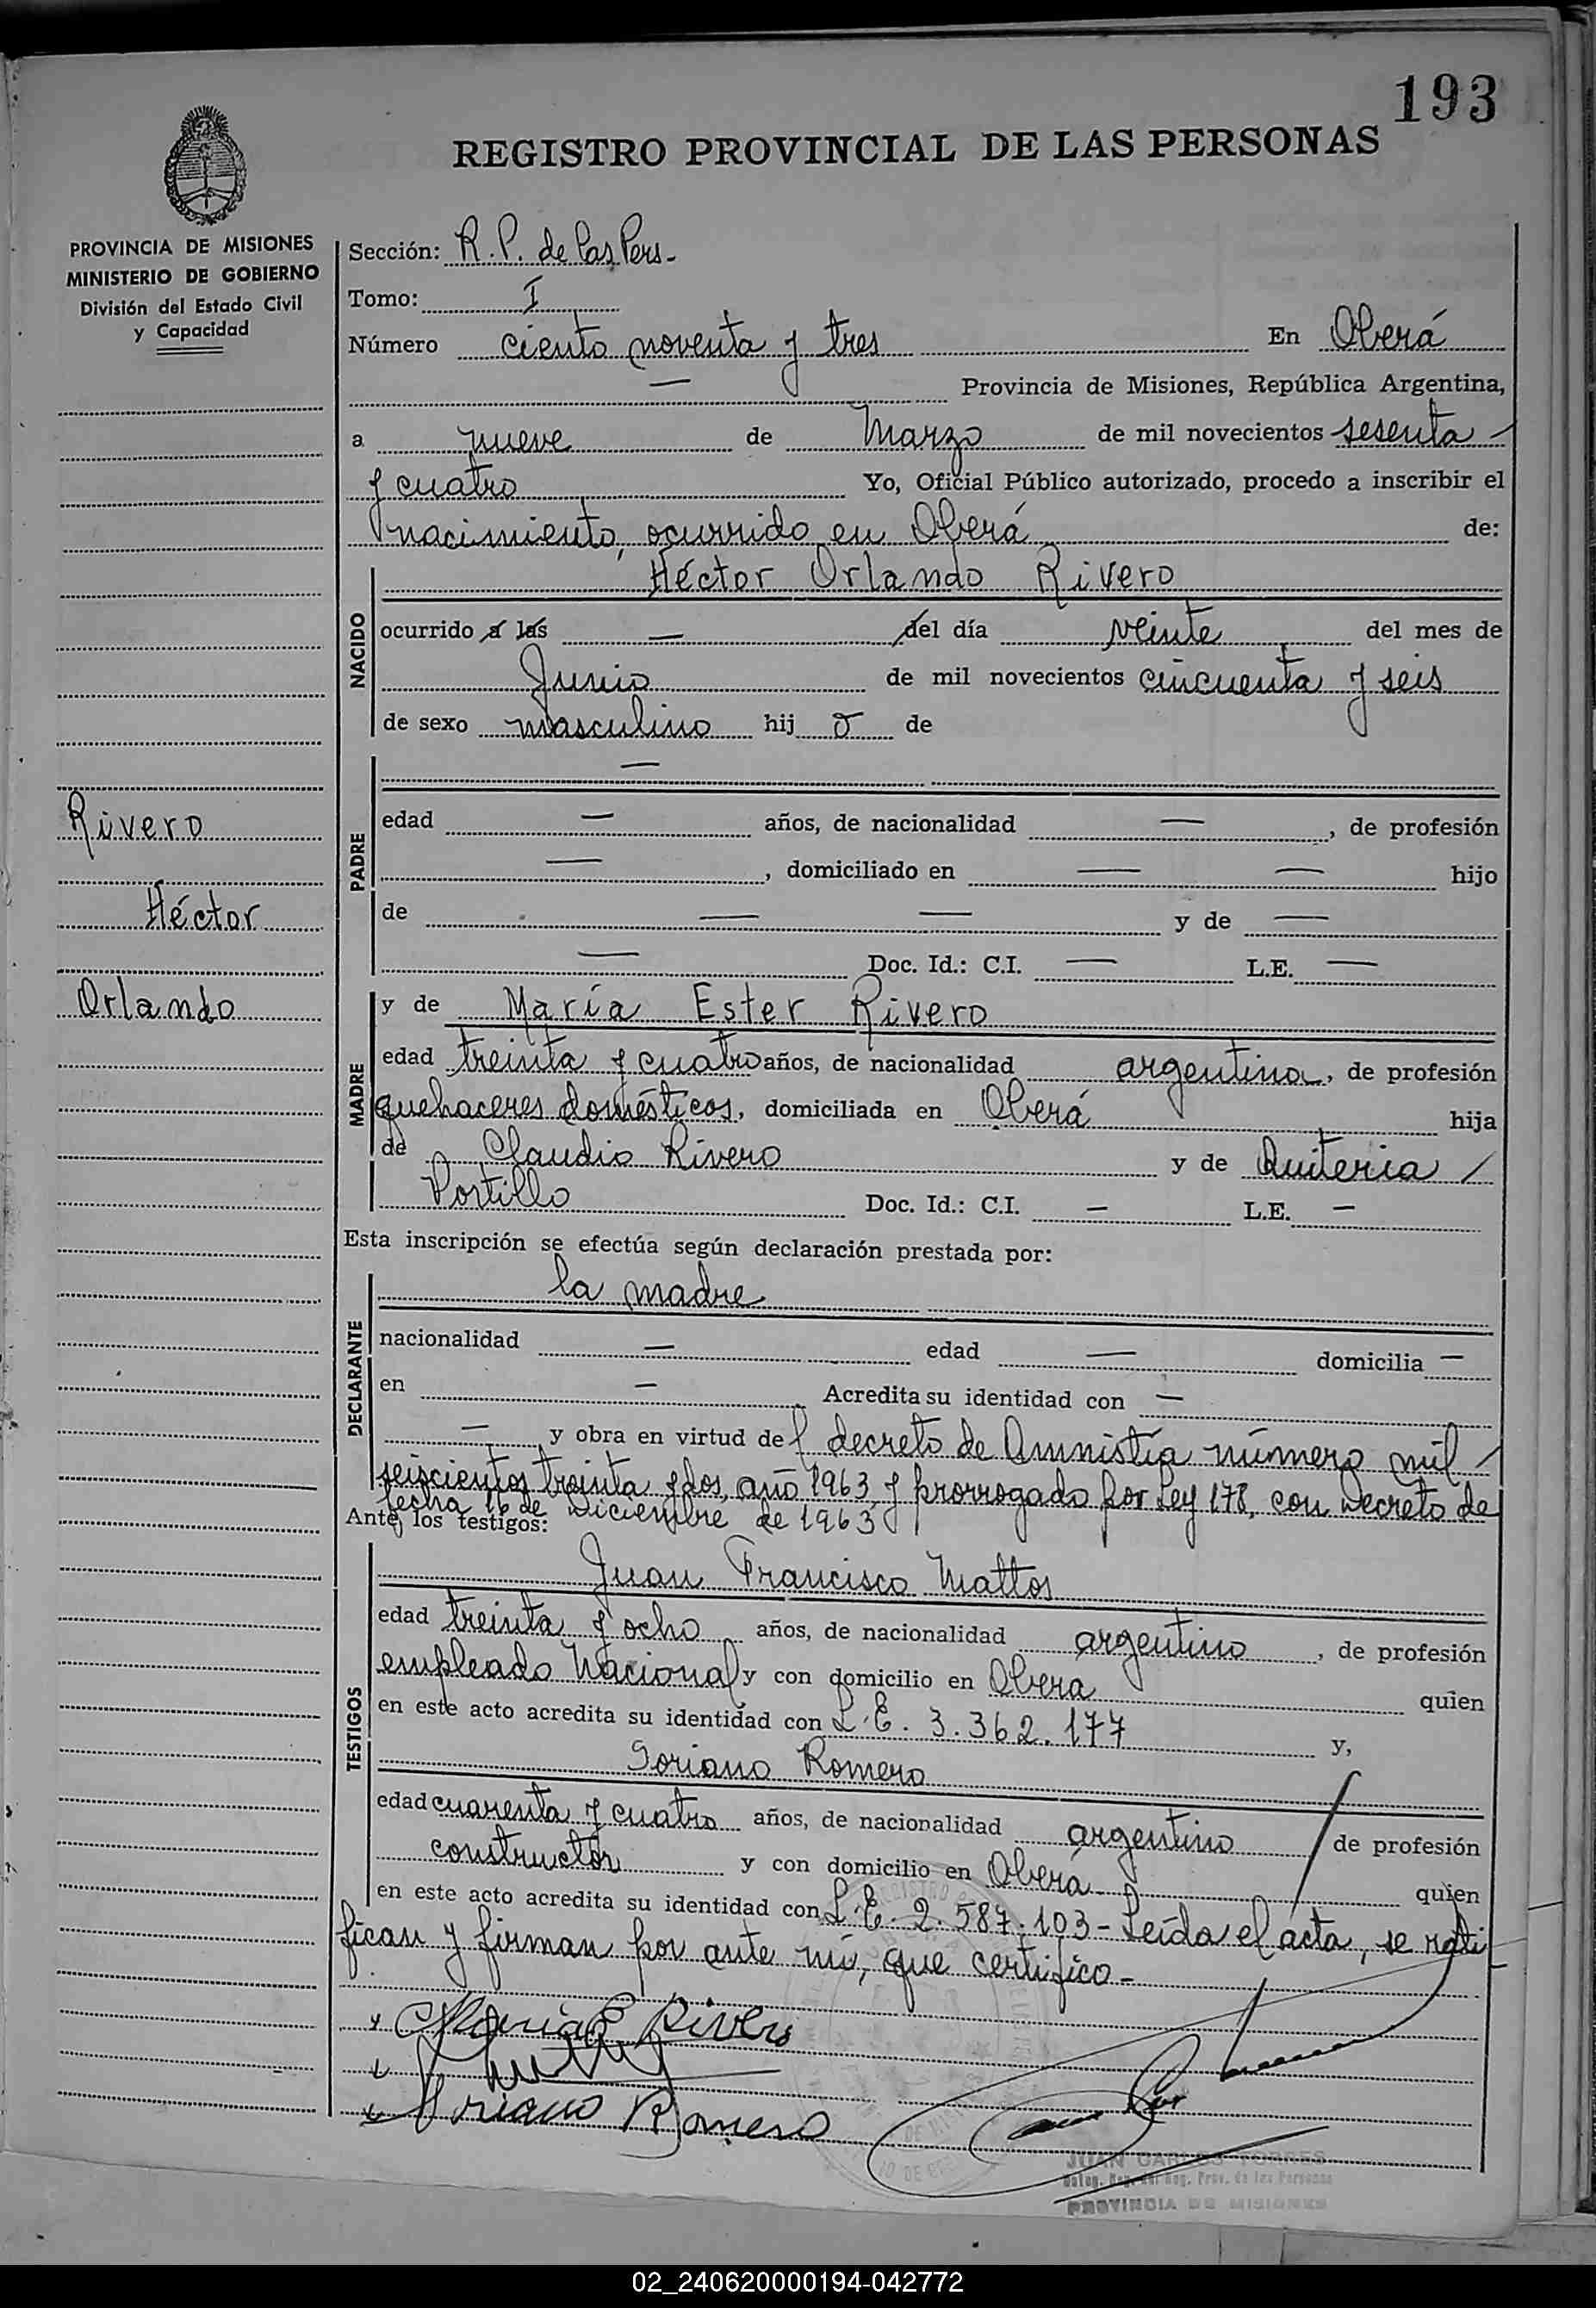 193
REGISTRO PROVINCIAL DE LAS PERSONAS
PROVINCIA DE MISIONES
MINISTERIO DE GOBIERNO
División del Estado Civil
y Capacidad
Rivero
Héctor
Orlando
Sección: R.P. de las Pers.
Tomo: I
Número ciento noventa y tres En Oberá
— Provincia de Misiones, República Argentina,
a nueve de Marzo de mil novecientos sesenta
y cuatro Yo, Oficial Público autorizado, procedo a inscribir el
nacimiento, ocurrido en Oberá de:
NACIDO
Héctor Orlando Rivero
ocurrido a las — del día veinte del mes de
Junio de mil novecientos cincuenta y seis
de sexo masculino hij o de
PADRE
—
edad — años, de nacionalidad —, de profesión
—, domiciliado en — — hijo
de — — y de —
— Doc. Id.: C.I. — L.E. —
MADRE
y de María Ester Rivero
edad treinta y cuatro años, de nacionalidad argentina, de profesión
quehaceres domésticos, domiciliada en Oberá hija
de Claudio Rivero y de Quiteria /
Portillo Doc. Id.: C.I. — L.E. —
Esta inscripción se efectúa según declaración prestada por:
DECLARANTE
la madre
nacionalidad — edad — domicilia —
en — Acredita su identidad con —
— y obra en virtud del decreto de Amnistía número mil /
seiscientos treinta y dos, año 1963, y prorrogado por Ley 178, con Decreto de
fecha 16 de Diciembre de 1963
Ante los testigos:
TESTIGOS
Juan Francisco Mattos
edad treinta y ocho años, de nacionalidad argentino, de profesión
empleado Nacional y con domicilio en Oberá quien
en este acto acredita su identidad con L.E. 3.362.177 y,
Soriano Romero
edad cuarenta y cuatro años, de nacionalidad argentino de profesión
constructor y con domicilio en Oberá quien
en este acto acredita su identidad con L.E. 2.587.103 - Leída el acta, se rati
fican y firman por ante mí, que certifico -
María E Rivero
Soriano Romero
JUAN CARLOS TORRES
Reg. Prov. de las Personas
PROVINCIA DE MISIONES
02_240620000194-042772